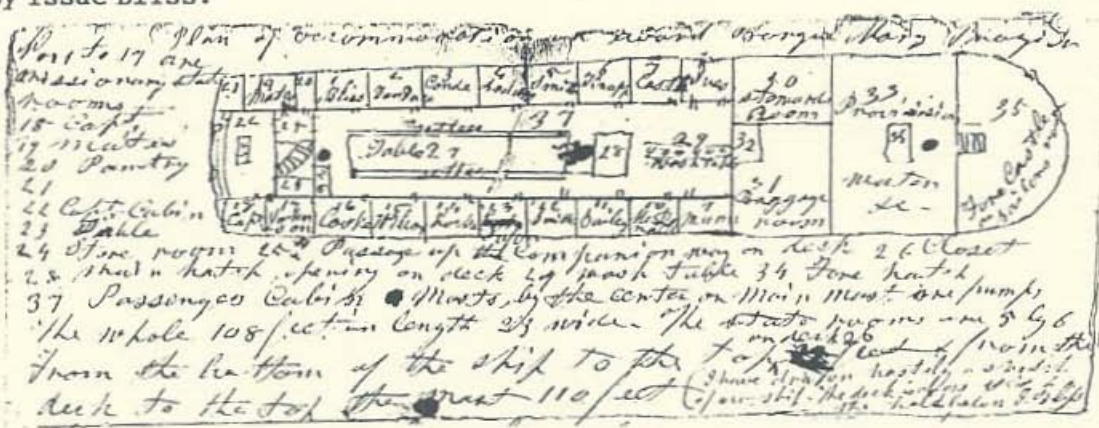 by Isaac Bliss.
Plan of accommodation on board Barque Mary Frazier
1 to 17 are
missionary state
rooms
18 Capt
19 Mates
20 Pantry
21
22 Capt Cabin
23 Table
21 Mate 20 Bliss Van Duzee Conde Locke Smith Knapp Castle Ives 30 Stewards Room 33 Provision 35
22 25 Settees 37
Table 27 28 29 Wash Table 32 34
settees 31 Baggage room water &c Fore Castle
Capt 17 Johnson 16 Cooke 15 Wilcox Bailey 7 Munn
24 Store room 25 Passage up the Companion way on deck 26 Closet
28 main hatch opening on deck 29 wash table 34 Fore hatch
37 Passengers Cabin Masts, by the center or main mast one pump
The whole 108 feet in length 23 wide. The state rooms are 5 by 6
on deck 26
From the bottom of the ship to the top feet from the
deck to the top the mast 110 feet
I have drawn hastily a sketch
of our ship. the deck